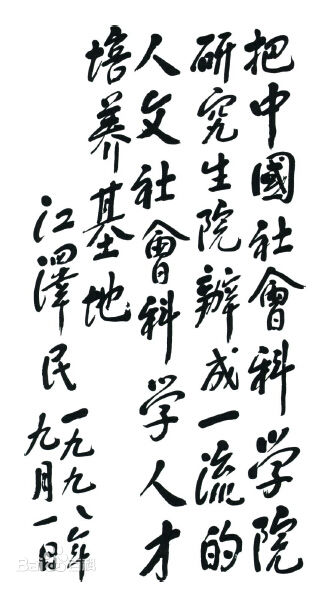 把中國社會科学院
研究生院辦成一流的
人文社會科学人才
培养基地
江澤民
一九九八年
九月一日
Baidu百科